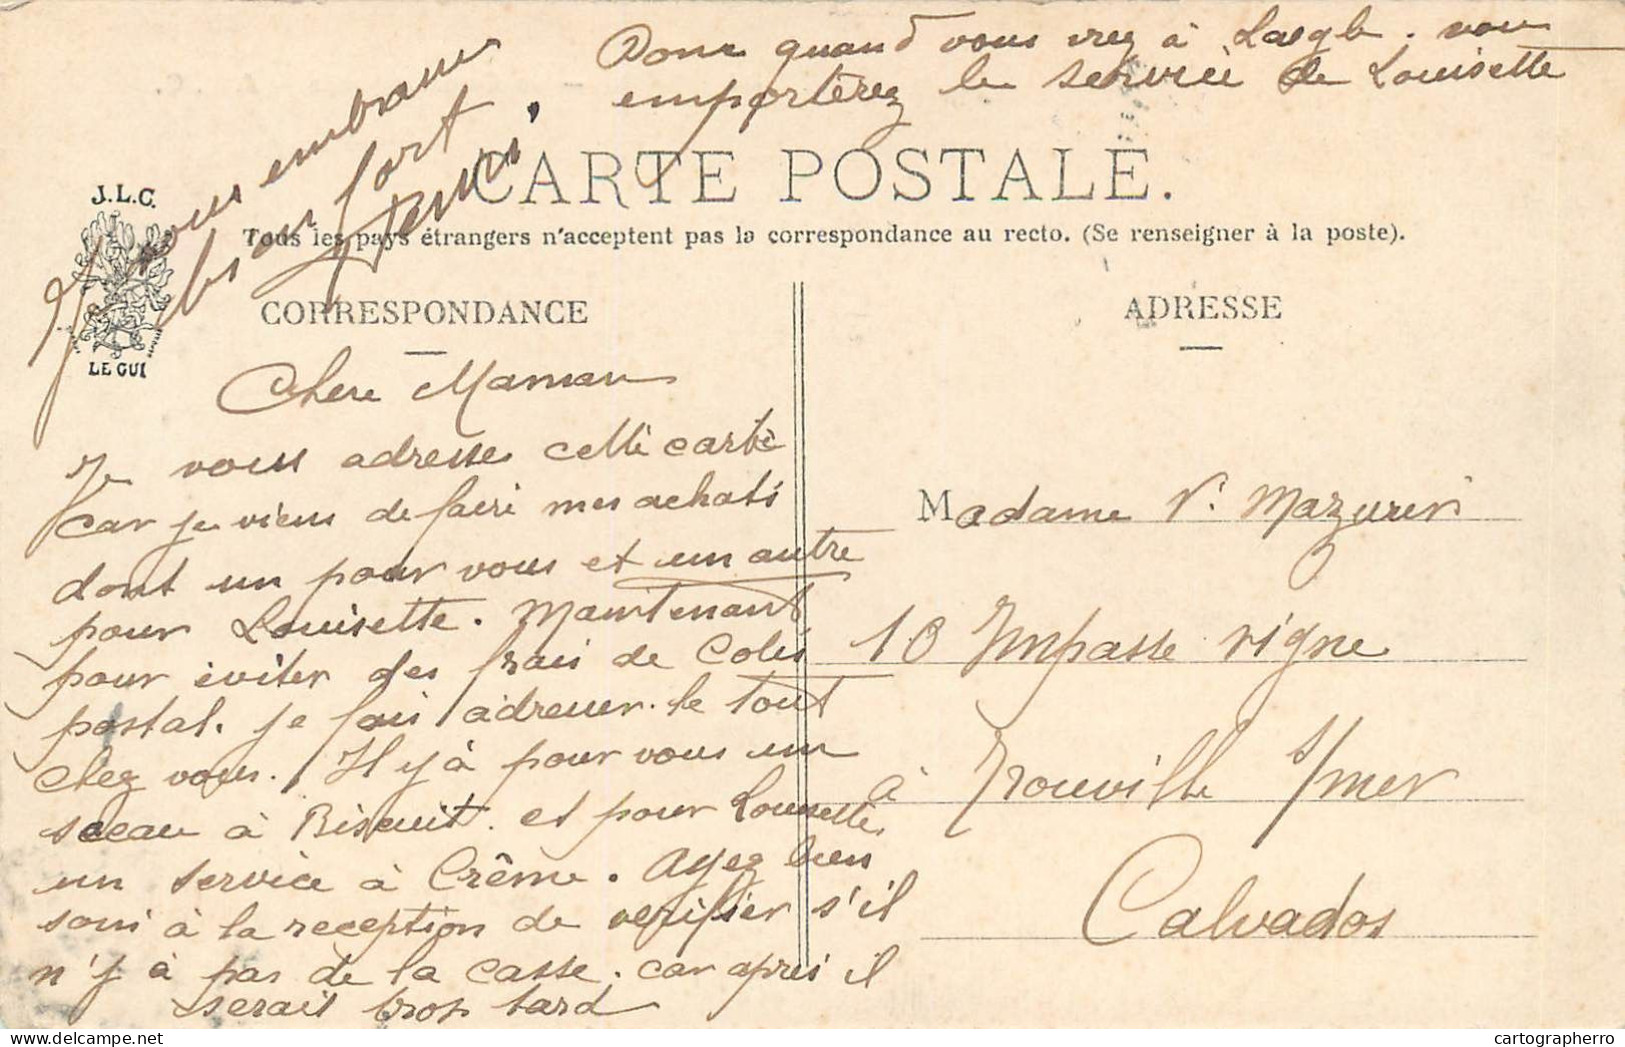 Donc quand vous irez à Laegle. vous
emporterez le service de Louisette
Je vous embrasse
bien fort
CARTE POSTALE.
J.L.C.
Tous les pays étrangers n'acceptent pas la correspondance au recto. (Se renseigner à la poste).
LE GUI
CORRESPONDANCE
ADRESSE
Chere Maman
Je vous adresse cette carte
car je viens de faire mes achats
dont un pour vous et un autre
pour Louisette. Maintenant
pour eviter des frais de Colis
postal. je fais adresser le tout
chez vous. Il y à pour vous un
sceau à Biscuit. et pour Louisette.
un service à Crême. Ayez bien
soin à la reception de verifier s'il
n'y à pas de la casse. car après il
serait trop tard
Madame V. Mazurier
10 Impasse vigne
à Trouville s/mer
Calvados
cartographerro